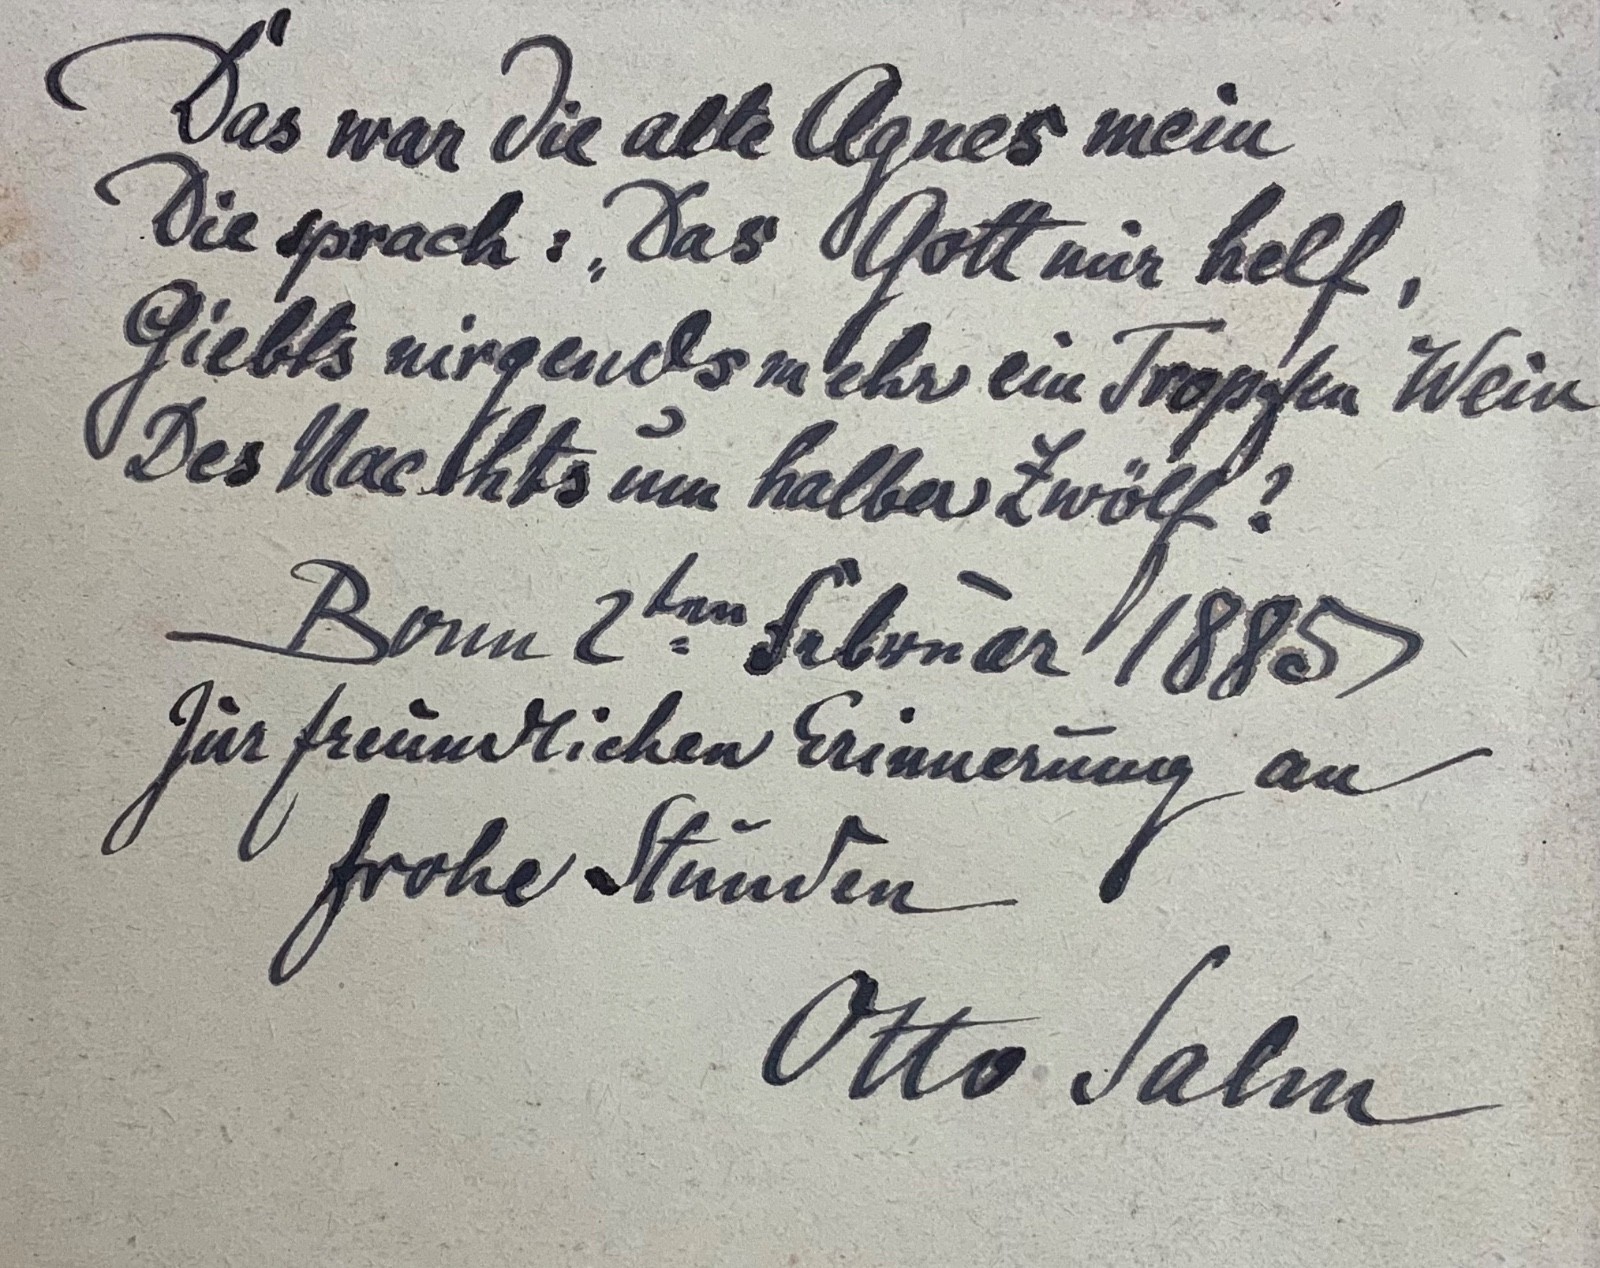 Das war die alte Agnes mein
Die sprach: „Das Gott mir helf,
Giebts nirgends mehr ein Tropfen Wein
Des Nachts um halber Zwölf?
Bonn 2ten Februar 1885
Zur freundlichen Erinnerung an
frohe Stunden
Otto Salm